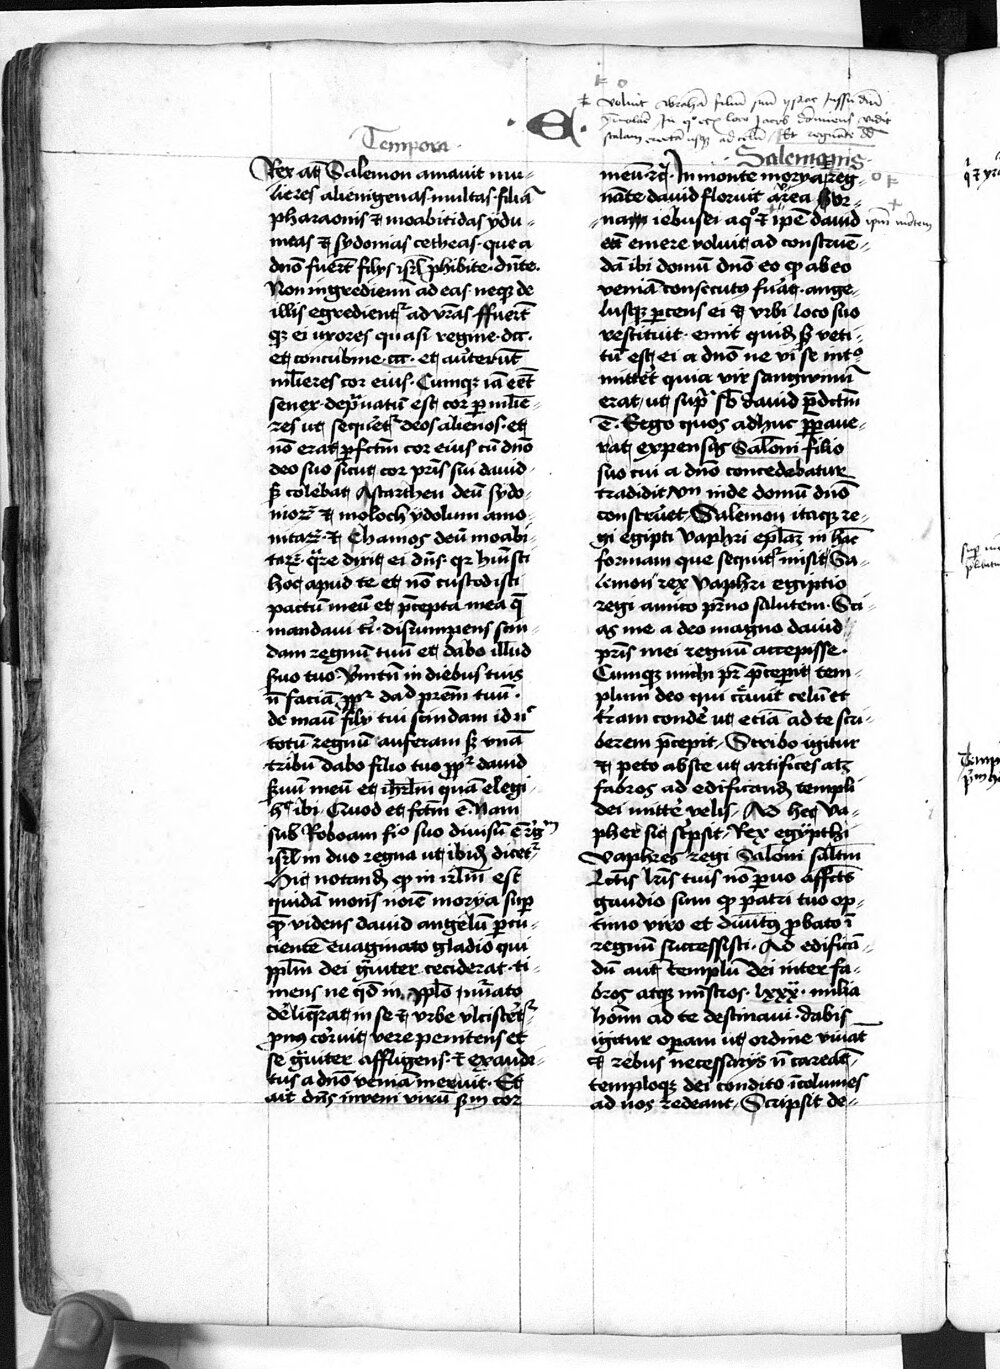 Tempora
Rex autē Salemon amauit mu=
lieres alienigenas multas filiā
pharaonis et moabitidas ydu=
meas et sydonias cetheas que a
dn̄o fuer̄t filijs isrl̄ phibite dn̄te.
Non ingrediemī ad eas neqʒ de
illis egredient᷑ ad vr̄as ffuer̄t
qʒ ei uxores quasi regine dcc.
et concubine ccc. et au̓terūt
ml̓ieres cor eius. Cumqʒ iā eēt
senex dep̓uatū est cor p ml̓ie=
res ut sequet᷑ deos alienos et
nō erat pfctm̄ cor eius cū dn̄o
deo suo sicut cor pr̄is sui dauid
s̄ colebat Astarthen deū sydo=
nioꝝ et moloch ydolum amo=
nitaꝝ et Chamos deū moabi=
taꝝ. q̄re dixit ei dn̄s. qr hūisti
hoc apud te et nō custodisti
pactū meū et p̄cepta mea q̄
mandaui t̄. disrumpens scin=
dam regnū tuū et dabo illud
s̓uo tuo. Vn̄tn̄ in diebus tuis
n̄ faciā ꝓpt᷑ dad prēm tuū.
de manu filij tui scindam id nc̄
totū regnū auferam s̄ vnā
tribū dabo filio tuo ꝓpt᷑ dauid
s̓uum meū et ihr̄lm quā elegi
ibi. Quod et fctm̄ ē. Nam
sub Roboam fio suo diuisū ē rgm̄
isrl̄ in duo regna ut ibid̄ dicet᷑
Hic notand̄ qp in irl̄m est
quidā mons noīe morya sup
quē videns dauid angelū pcu=
ciente euaginato gladio qui
ppl̄m dei gr̓uiter ceciderat ti=
mens ne qd̄ in ppl̄o nūato
de̓liqrat in se et vrbe vlciscet᷑
pnꝰ cor̓uit vere penitens et
se gr̓uiter affligens et exaudi=
tus a dn̄o veniā meruit. Et
ait dn̄s inveni virū s̄m cor
voluit abrahā filiū suū ysaac iussu dn̄i
ymolare In qo loco Jacob dormiens vidit
scalam erectā usqʒ ad celū Et regnāte dd̄
Salemonis
meū rc̄. In monte morya reg=
nāte dauid floruit area Hor=
nam iebusei a qo et ipē dauid
ipm̄ montem
eā emere voluit ad construē=
dā ibi domū dn̄o eo qp ab eo
veniā consecutꝰ fuāt ange=
lusqʒ pcens ei et vrbi loco suo
restituit. emit quid̄ s̄ veti=
tū est ei a dn̄o ne vi se into=
mittet quia vir sangwinū
erat ut sup̄ sb̄ dauid p̄dctm̄
ē. Ergo quos adhuc ppaue=
rat expensas Salōni filio
suo cui a dn̄o concedebatur
tradidit vn̄ inde domū dn̄o
construet. Salemon itaqʒ re=
gi egipti vaphri epl̄az in hāc
formam que sequit᷑ misit. Sa=
lemon rex Vaphri egiptio
regi amico pr̄no salutem. Sci=
as me a deo magno dauid
pr̄is mei regnū accepisse.
Cumqʒ michi pr̄ p̄ceperit tem=
plum deo qui c̓auit celū et
tr̄am conde̓ ut eciā ad te scri=
berem p̄cepit. Scribo igitur
et peto abste ut artifices atqʒ
fabros ad edificand̄ templi
dei mitte̓ velis. Ad hec Va=
pher sic scpsit. Rex egypthi
Vaphres regi Salōni salt̄m
Lctis lr̄is tuis nō puo affctꝰ
gaudio sum qp patri tuo op=
timo viro et diuitꝰ pbato ī
regnū successisti. Ad edificā=
dū aut templū dei inter fa=
bros atqʒ mīstros lxxx milia
hoīm ad te destinaui. dabis
igitur opam ut ordine viuāt
et rebus necessarijs n̄ careāt
temploqʒ dei condito īcolumes
ad nos redeant. Scripsit de=